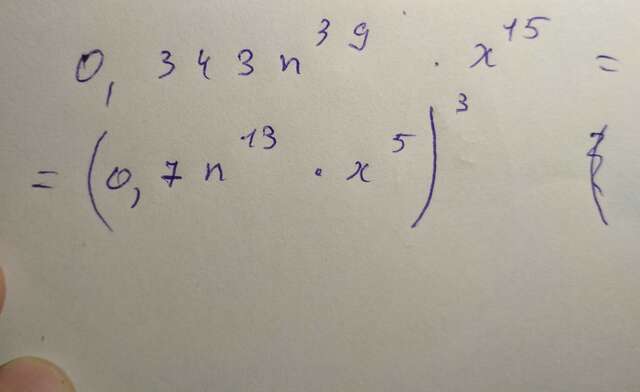 0,343n³⁹ · x¹⁵ =
= (0,7n¹³ · x⁵)³